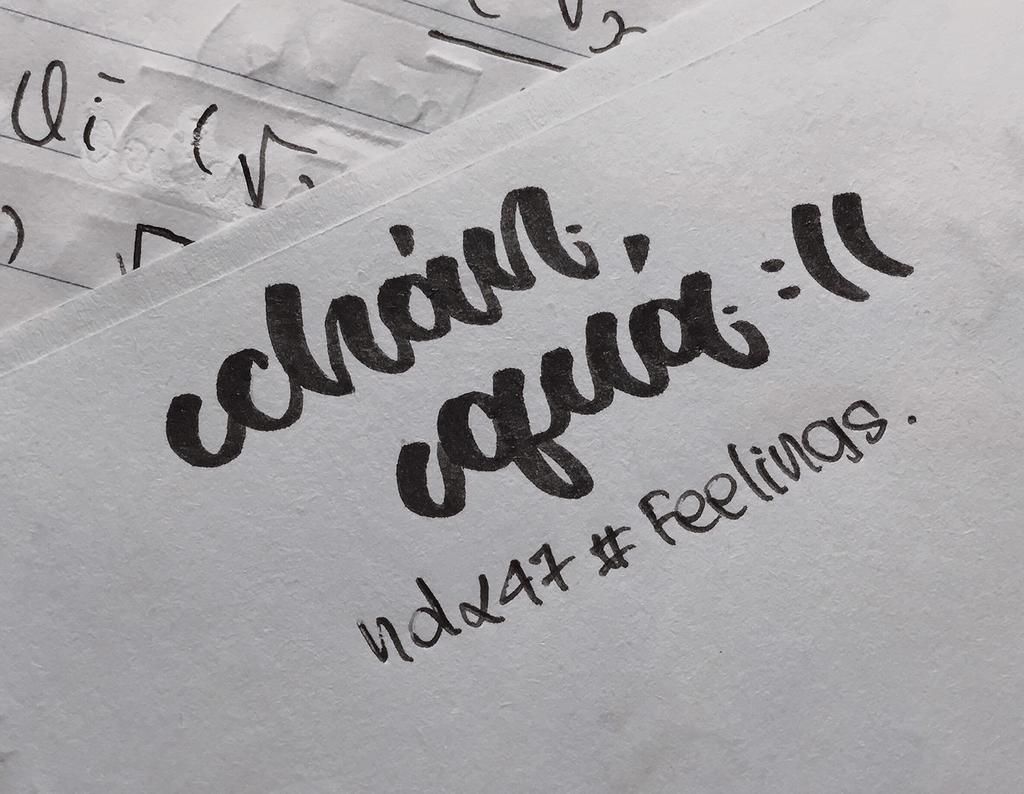 chán
quá :((
ndα47 # Feelings.